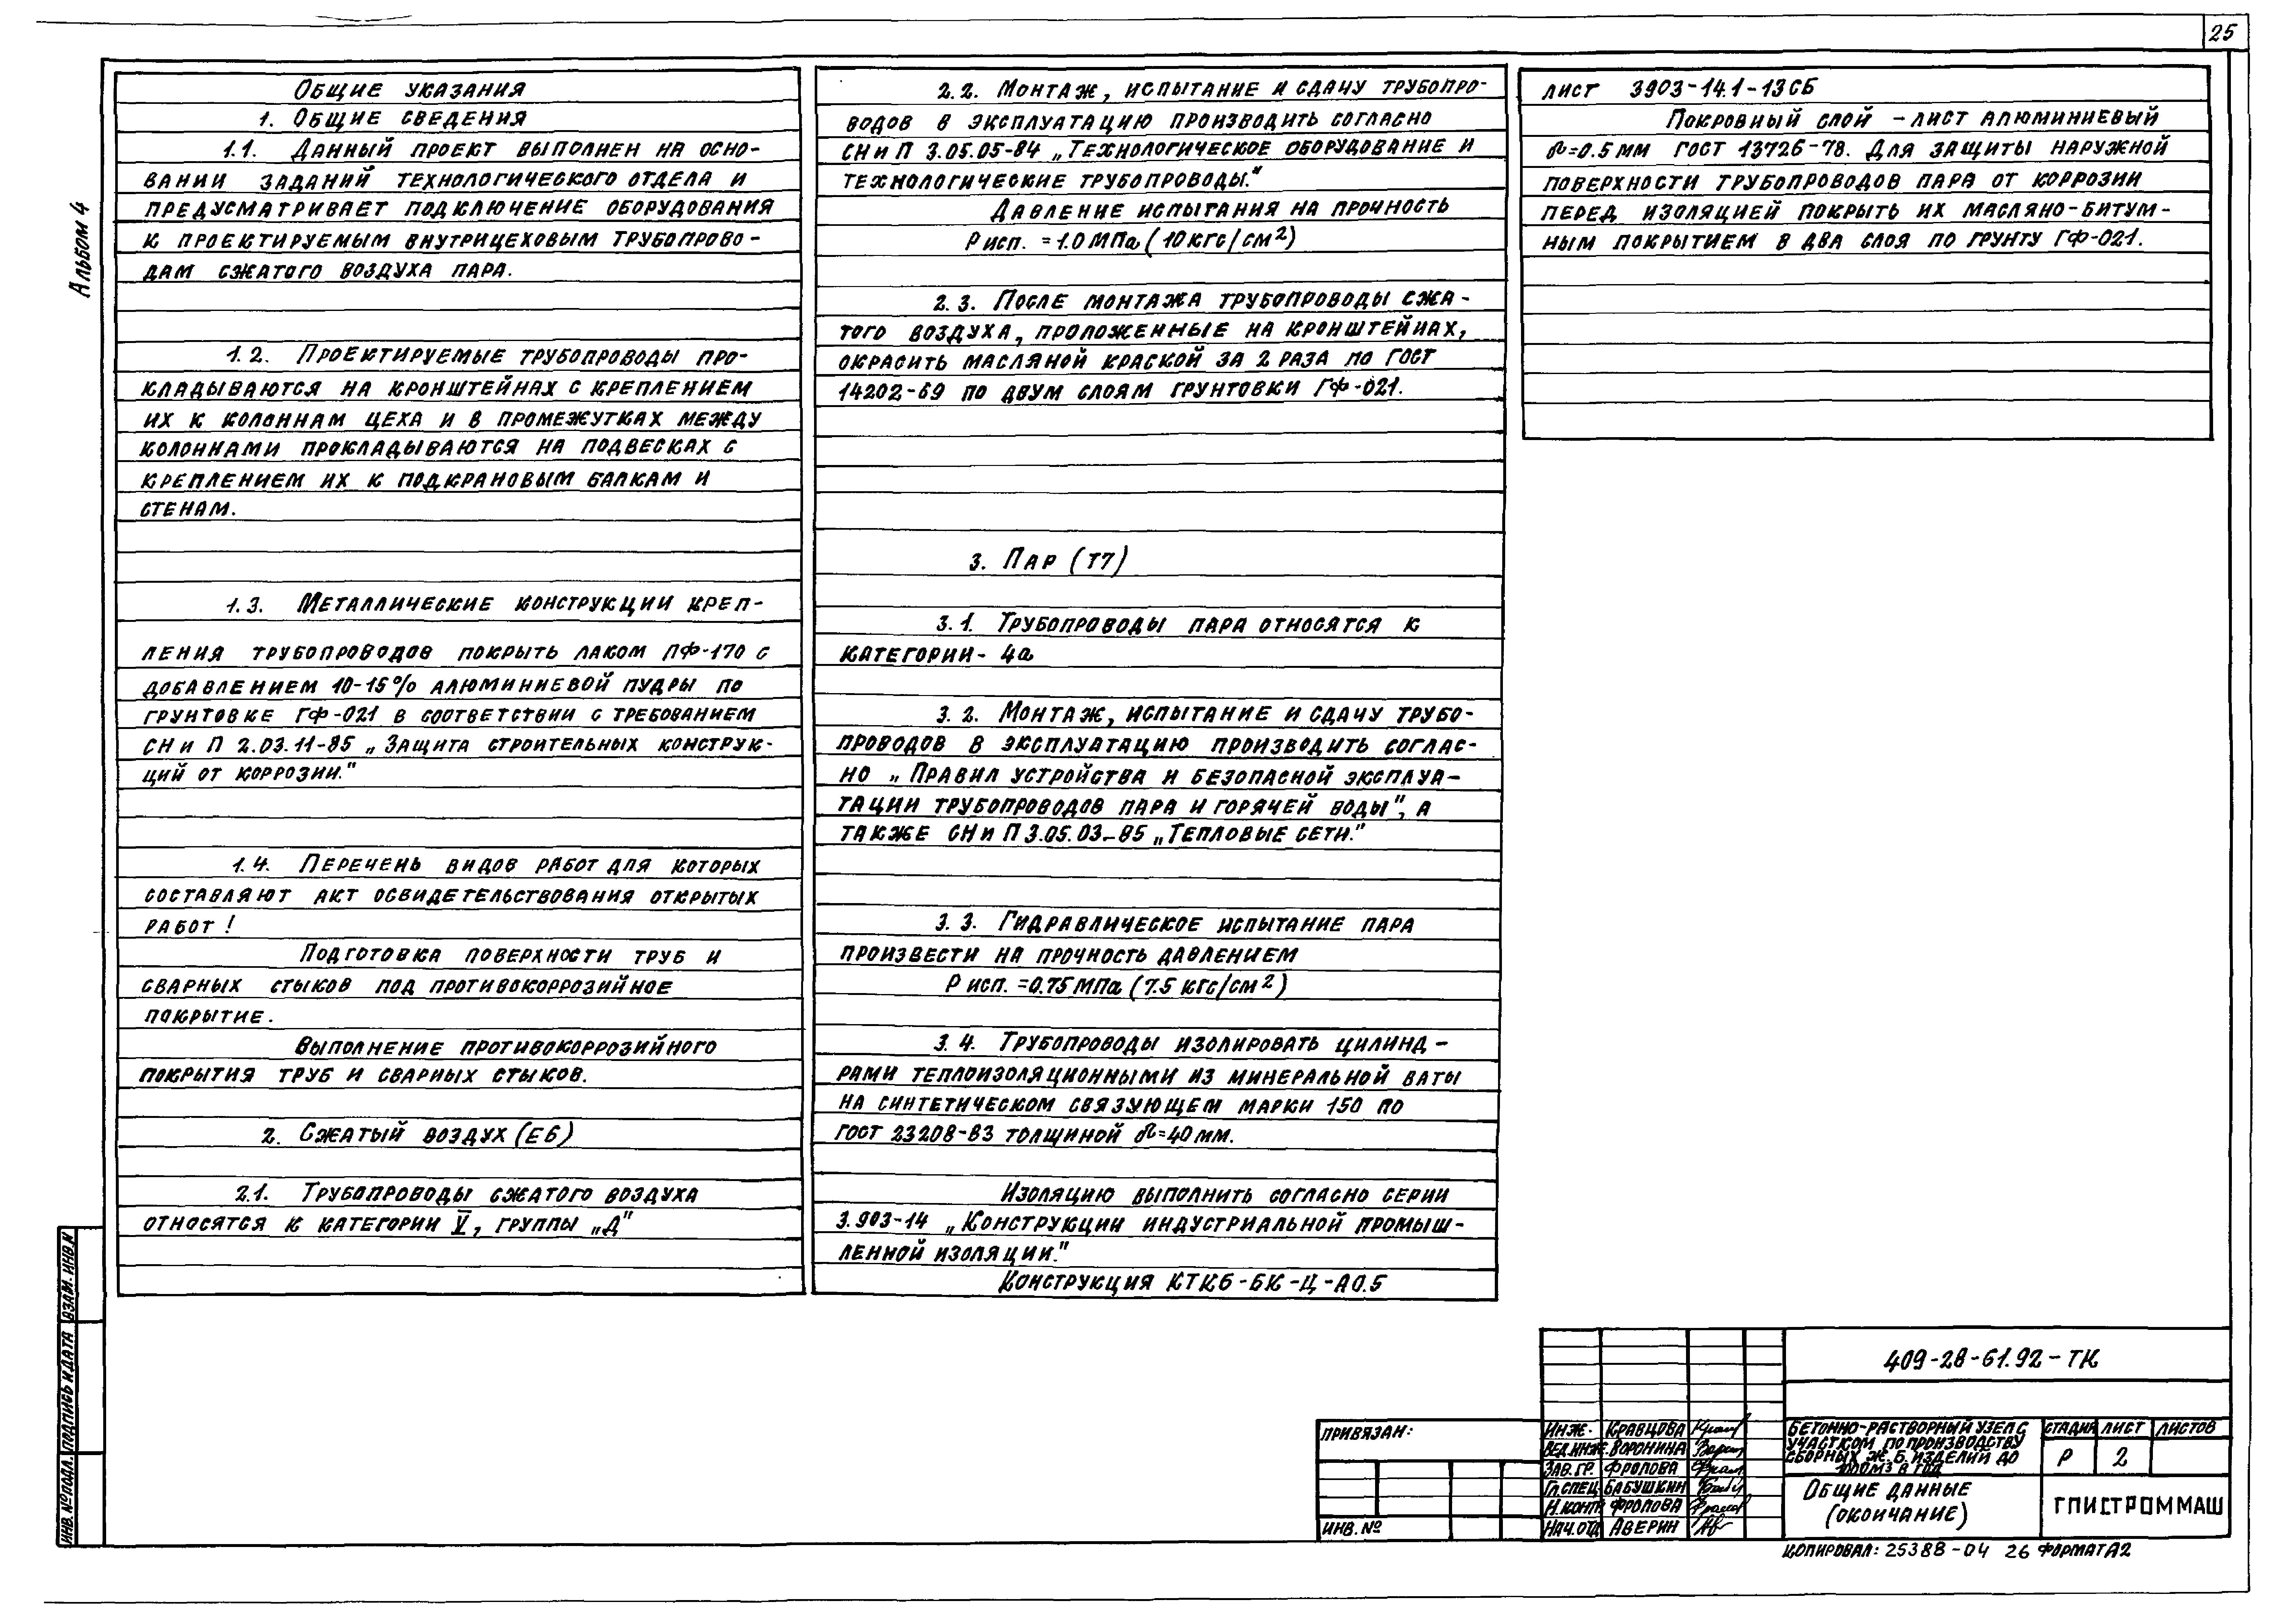 25
Альбом 4
Общие указания
1. Общие сведения
1.1. Данный проект выполнен на осно-
вании заданий технологического отдела и
предусматривает подключение оборудования
к проектируемым внутрицеховым трубопрово-
дам сжатого воздуха пара.
1.2. Проектируемые трубопроводы про-
кладываются на кронштейнах с креплением
их к колоннам цеха и в промежутках между
колоннами прокладываются на подвесках с
креплением их к подкрановым балкам и
стенам.
1.3. Металлические конструкции креп-
ления трубопроводов покрыть лаком ПФ-170 с
добавлением 10-15% алюминиевой пудры по
грунтовке ГФ-021 в соответствии с требованием
СН и П 2.03.11-85 „Защита строительных конструк-
ций от коррозии."
1.4. Перечень видов работ для которых
составляют акт освидетельствования открытых
работ!
Подготовка поверхности труб и
сварных стыков под противокоррозийное
покрытие.
Выполнение противокоррозийного
покрытия труб и сварных стыков.
2. Сжатый воздух (Е6)
2.1. Трубопроводы сжатого воздуха
относятся к категории V, группы „Д"
2.2. Монтаж, испытание и сдачу трубопро-
водов в эксплуатацию производить согласно
СН и П 3.05.05-84 „Технологическое оборудование и
технологические трубопроводы."
Давление испытания на прочность
Р исп. = 1.0 МПа (10 кгс/см²)
2.3. После монтажа трубопроводы сжа-
того воздуха, проложенные на кронштейнах,
окрасить масляной краской за 2 раза по ГОСТ
14202-69 по двум слоям грунтовки ГФ-021.
3. Пар (Т7)
3.1. Трубопроводы пара относятся к
категории- 4а
3.2. Монтаж, испытание и сдачу трубо-
проводов в эксплуатацию производить соглас-
но „Правил устройства и безопасной эксплуа-
тации трубопроводов пара и горячей воды", а
также СН и П 3.05.03-85 „Тепловые сети."
3.3. Гидравлическое испытание пара
произвести на прочность давлением
Р исп. =0.75 МПа (7.5 кгс/см²)
3.4. Трубопроводы изолировать цилинд-
рами теплоизоляционными из минеральной ваты
на синтетическом связующем марки 150 по
ГОСТ 23208-83 толщиной δ=40мм.
Изоляцию выполнить согласно серии
3.903-14 „Конструкции индустриальной промыш-
ленной изоляции."
Конструкция КТК6-БК-Ц-А0.5
лист 3903-14.1-13СБ
Покровный слой - лист алюминиевый
δ=0.5мм ГОСТ 13726-78. Для защиты наружной
поверхности трубопроводов пара от коррозии
перед изоляцией покрыть их масляно-битум-
ным покрытием в два слоя по грунту ГФ-021.
Взам. инв. №
Подпись и дата
Инв. № подл.
Привязан:
Инв. №
Инж. Кравцова
Вед.инж. Воронина
Зав.гр. Фролова
Гл.спец. Бабушкин
Н.конт. Фролова
Нач.отд Аверин
409-28-61.92-ТК
Бетонно-растворный узел с
участком по производству
сборных ж.б. изделий до
1000м3 в год
Стадия Лист Листов
Р 2
Общие данные
(окончание)
Гипстроммаш
Копировал: 25388-04 26 Формат А2